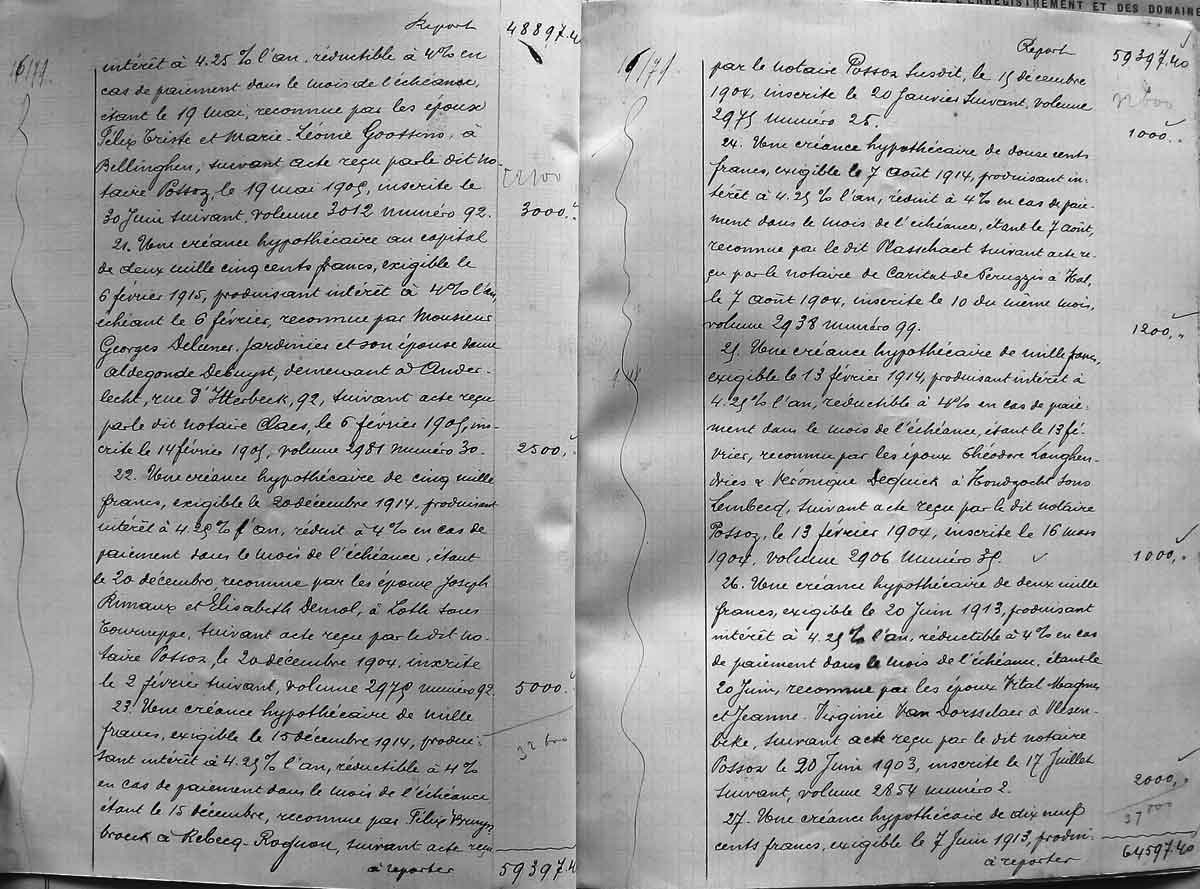 Report 48897.40
16/71. intérêt à 4.25 % l'an, réductible à 4% en
cas de paiement dans le mois de l'échéance,
étant le 19 mai, reconnue par les époux
Félix Triste et Marie-Léonie Goossins, à
Bellinghen, suivant acte reçu par le dit no-
taire Possoz, le 19 mai 1905, inscrite le
30 Juin suivant, volume 3012 numéro 92. 3000,"
21. Une créance hypothécaire au capital
de deux mille cinq cents francs, exigible le
6 février 1915, produisant intérêt à 4% l'an,
échéant le 6 février, reconnue par Monsieur
Georges Jardinier et son épouse dame
Aldegonde Debuyst, demeurant à Ander-
lecht, rue d'Itterbeek, 92, suivant acte reçu
par le dit notaire Claes, le 6 février 1905, ins-
crite le 14 février 1905, volume 2981 numéro 30. 2500,"
22. Une créance hypothécaire de cinq mille
francs, exigible le 20 décembre 1914, produisant
intérêt à 4.25% l'an, réduit à 4% en cas de
paiement dans le mois de l'échéance, étant
le 20 décembre reconnue par les époux Joseph
Rimaux et Elisabeth Demol, à Loth sous
Tourneppe, suivant acte reçu par le dit no-
taire Possoz, le 20 décembre 1904, inscrite
le 2 février suivant, volume 2978 numéro 92. 5000."
23. Une créance hypothécaire de mille
francs, exigible le 15 décembre 1914, produi-
sant intérêt à 4.25% l'an, réductible à 4%
en cas de paiement dans le mois de l'échéance
étant le 15 décembre, reconnue par Félix
broeck à Rebecq-Rognon, suivant acte reçu
à reporter 59397.40
L'ENREGISTREMENT ET DES DOMAINE
Report 59397.40
16/71. par le notaire Possoz susdit, le 15 décembre
1904, inscrite le 20 Janvier suivant, volume
2975 numéro 25. 1000."
24. Une créance hypothécaire de douze cents
francs, exigible le 7 août 1914, produisant in-
térêt à 4.25% l'an, réduit à 4% en cas de paie-
ment dans le mois de l'échéance, étant le 7 août,
reconnue par le dit Plasschaert suivant acte re-
çu par le notaire de Caritat de Peruzzis à Hal,
le 7 août 1904, inscrite le 10 du même mois,
volume 2938 numéro 99. 1200,"
25. Une créance hypothécaire de mille francs,
exigible le 13 février 1914, produisant intérêt à
4.25% l'an, réductible à 4% en cas de paie-
ment dans le mois de l'échéance, étant le 13 fé-
vrier, reconnue par les époux Théodore Langhen-
dries & Véronique Dequick à Hondzocht sous
Lembecq, suivant acte reçu par le dit notaire
Possoz, le 13 février 1904, inscrite le 16 mars
1904, volume 2906 numéro 35. 1000,"
26. Une créance hypothécaire de deux mille
francs, exigible le 20 Juin 1913, produisant
intérêt à 4.25% l'an, réductible à 4% en cas
de paiement dans le mois de l'échéance, étant le
20 Juin, reconnue par les époux Vital
et Jeanne-Virginie Van Dorsselaer à Vlesen-
beke, suivant acte reçu par le dit notaire
Possoz le 20 Juin 1903, inscrite le 17 Juillet
suivant, volume 2854 numéro 2. 2000,"
27. Une créance hypothécaire de dix neuf
cents francs, exigible le 7 Juin 1913, produi-
à reporter 64597.40